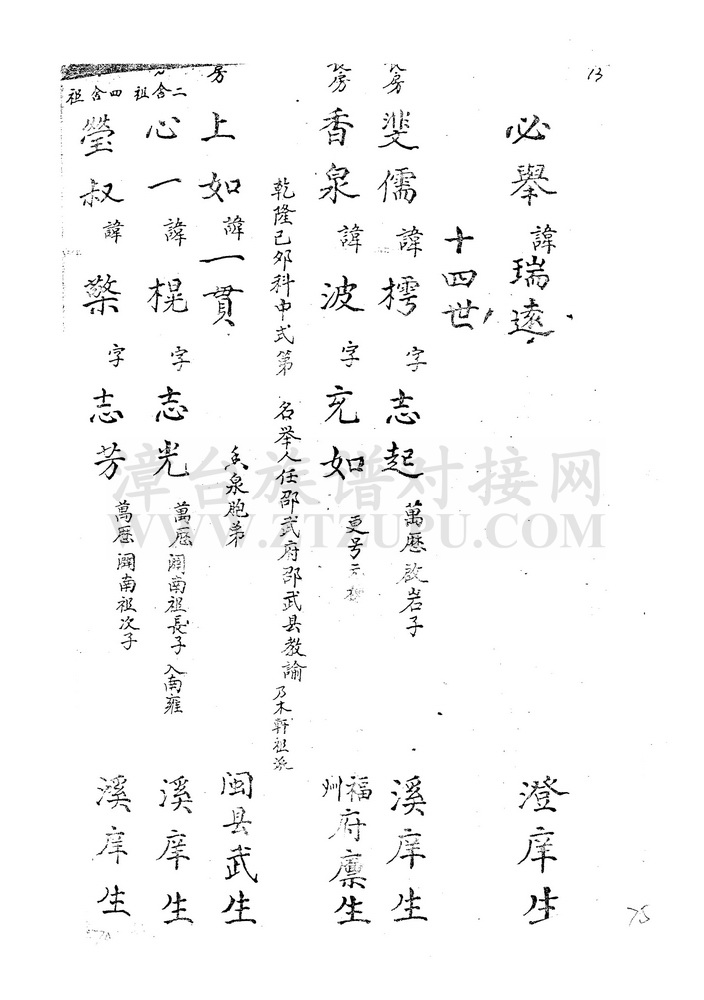 13
必舉 諱瑞遠 澄庠生
十四世
房
斐儒 諱樗 字志起 萬歷啟岩子 溪庠生
房
香泉 諱波 字充如 更号元 福州府廪生
乾隆己夘科中式第 名举人任邵武府邵武县教諭乃木軒祖派
房
上如 諱一貫 泉胞弟 闽县武生
二舍祖
心一 諱棍 字志光 萬歷 澗南祖長子入南雍 溪庠生
四舍祖
瑩叔 諱檠 字志芳 萬歷 澗南祖次子 溪庠生
75
漳台族谱对接网
WWW.ZTZUPU.COM